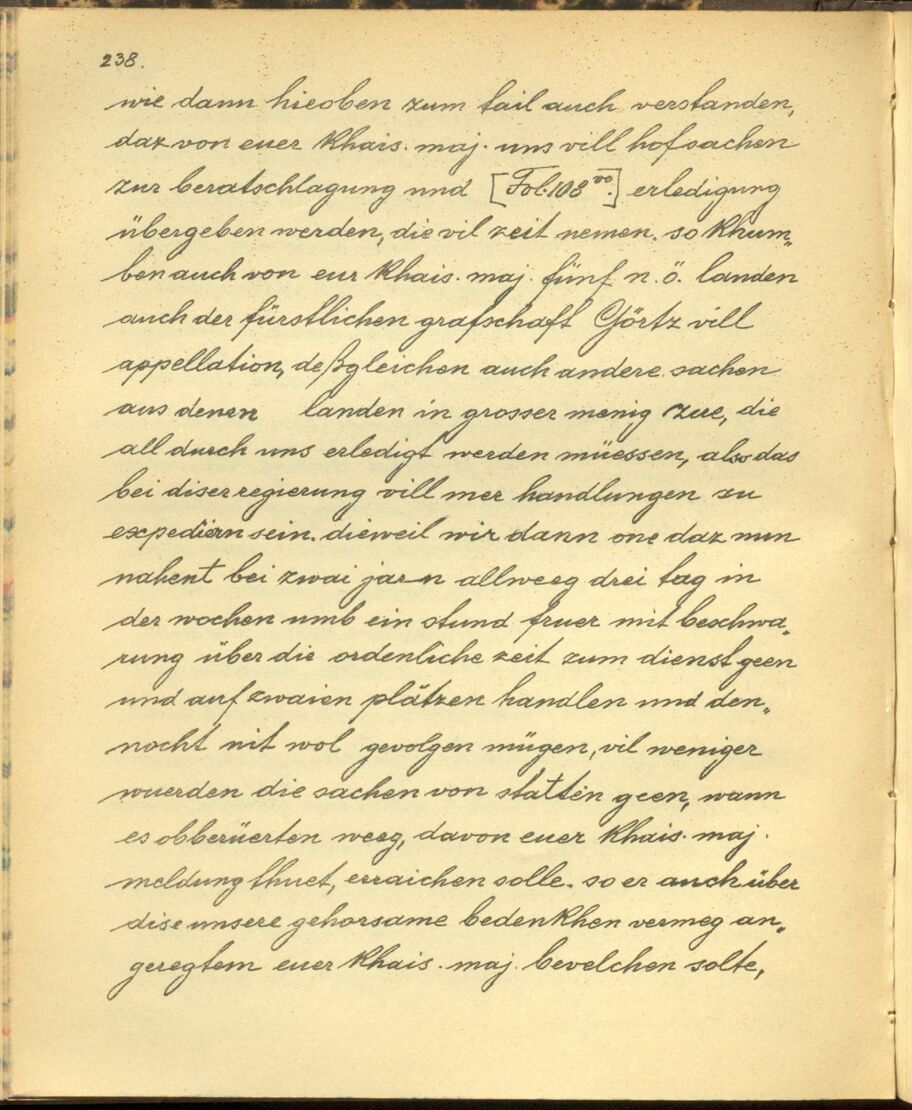 238.
wie dann hieoben zum tail auch verstanden,
daz von euer Khais. maj. uns vill hofsachen
zur beratschlagung und [Fol. 108 vo.] erledigung
übergeben werden, die vil zeit nemen. so khum„
ben auch von eur Khais. maj. fünf n. ö. landen
auch der fürstlichen grafschaft Görtz vill
appellation, deßgleichen auch andere sachen
aus denen landen in grosser menig zue, die
all durch uns erledigt werden müessen, also das
bei diser regierung vill mer handlungen zu
expediern sein. dieweil wir dann one daz nun
nahent bei zwai jarn allweeg drei tag in
der wochen umb ein stund fruer mit beschwa„
rung über die ordenliche zeit zum dienst geen
und auf zwaien plätzen handlen und den„
nocht nit wol gevolgen mügen, vil weniger
wuerden die sachen von statten geen, wann
es obberüerten weeg, davon euer Khais. maj.
meldung thuet, erraichen solle. so er auch über
dise unsere gehorsame bedenkhen vermeg an„
geregtem euer Khais. maj. bevelchen solte,